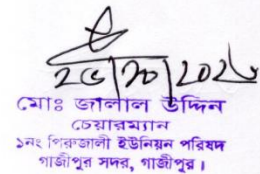 মোঃ জালাল উদ্দিন
চেয়ারম্যান
১নং পিরুজালী ইউনিয়ন পরিষদ
গাজীপুর সদর, গাজীপুর।